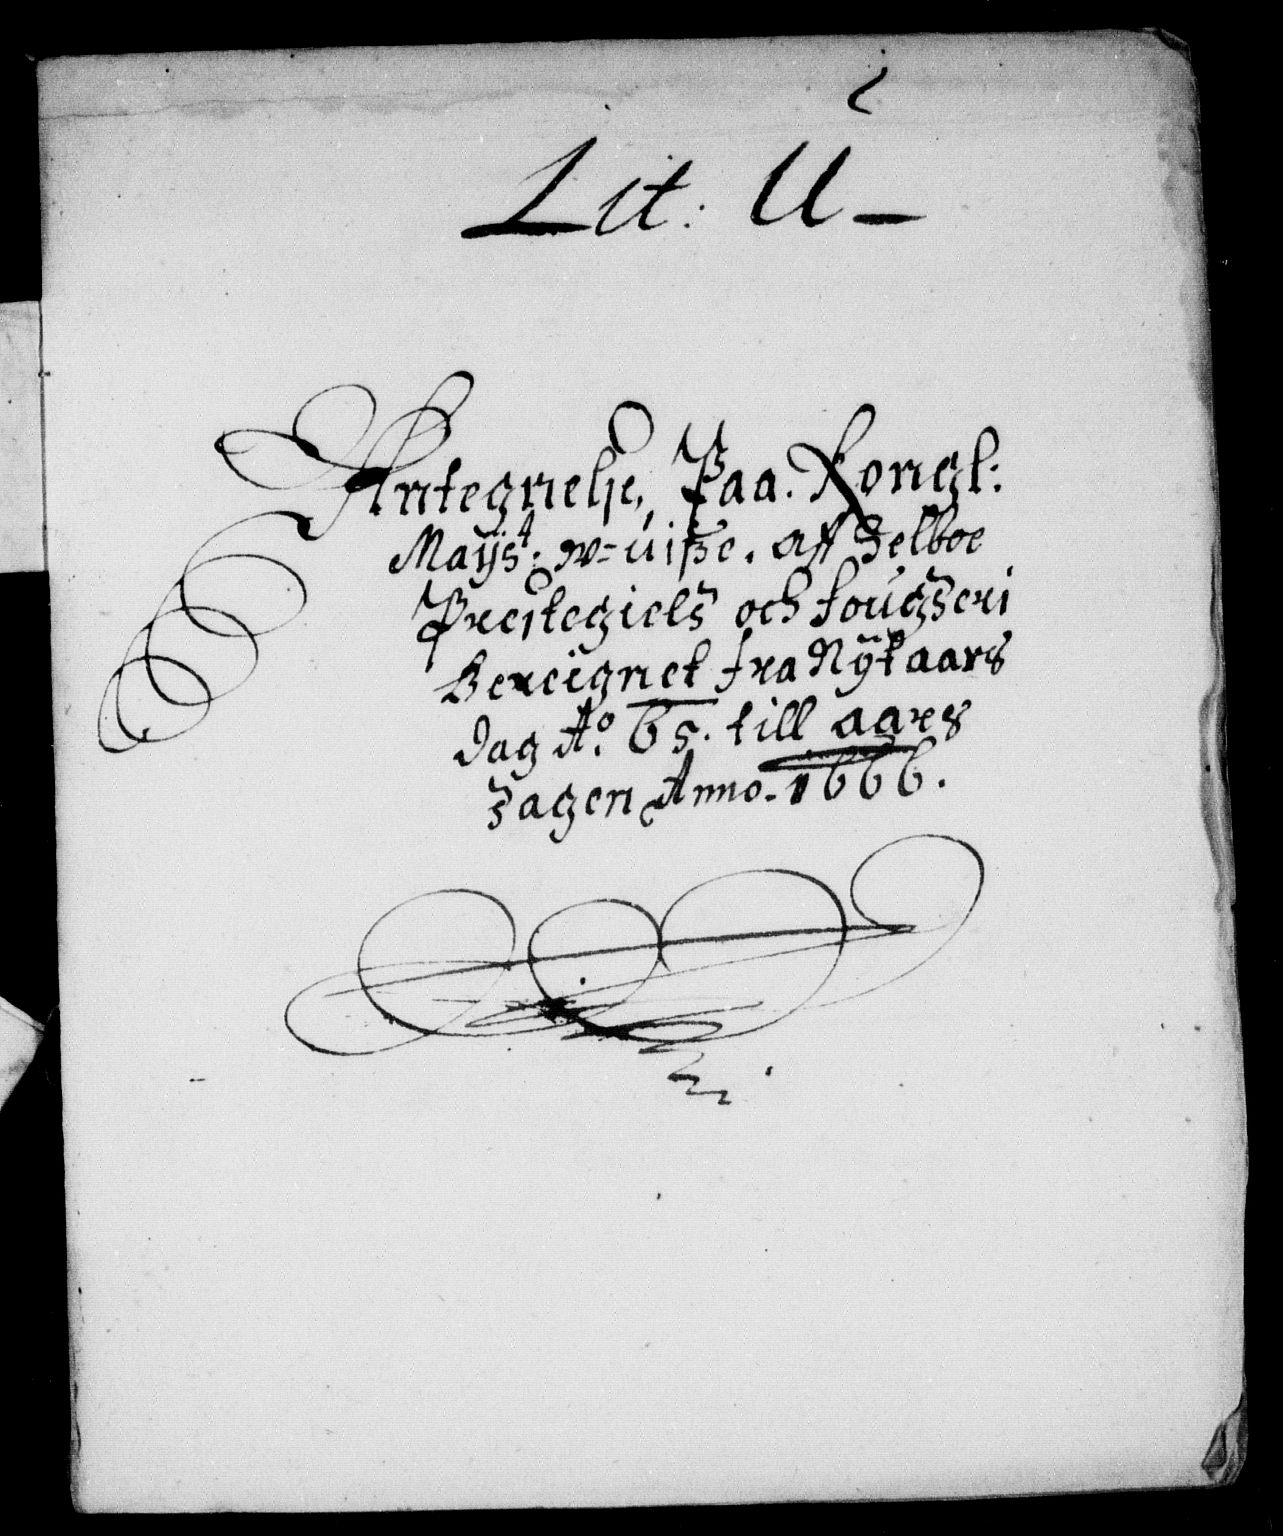 Lit: U
Antegnelse, Paa. Kongl:
Mayst: w-uisse. aff Selboe
Prestegiels och fougderi
Bereignet fra Nÿtaars
dag Ao. 65. till aars
dagen Anno. 1666.